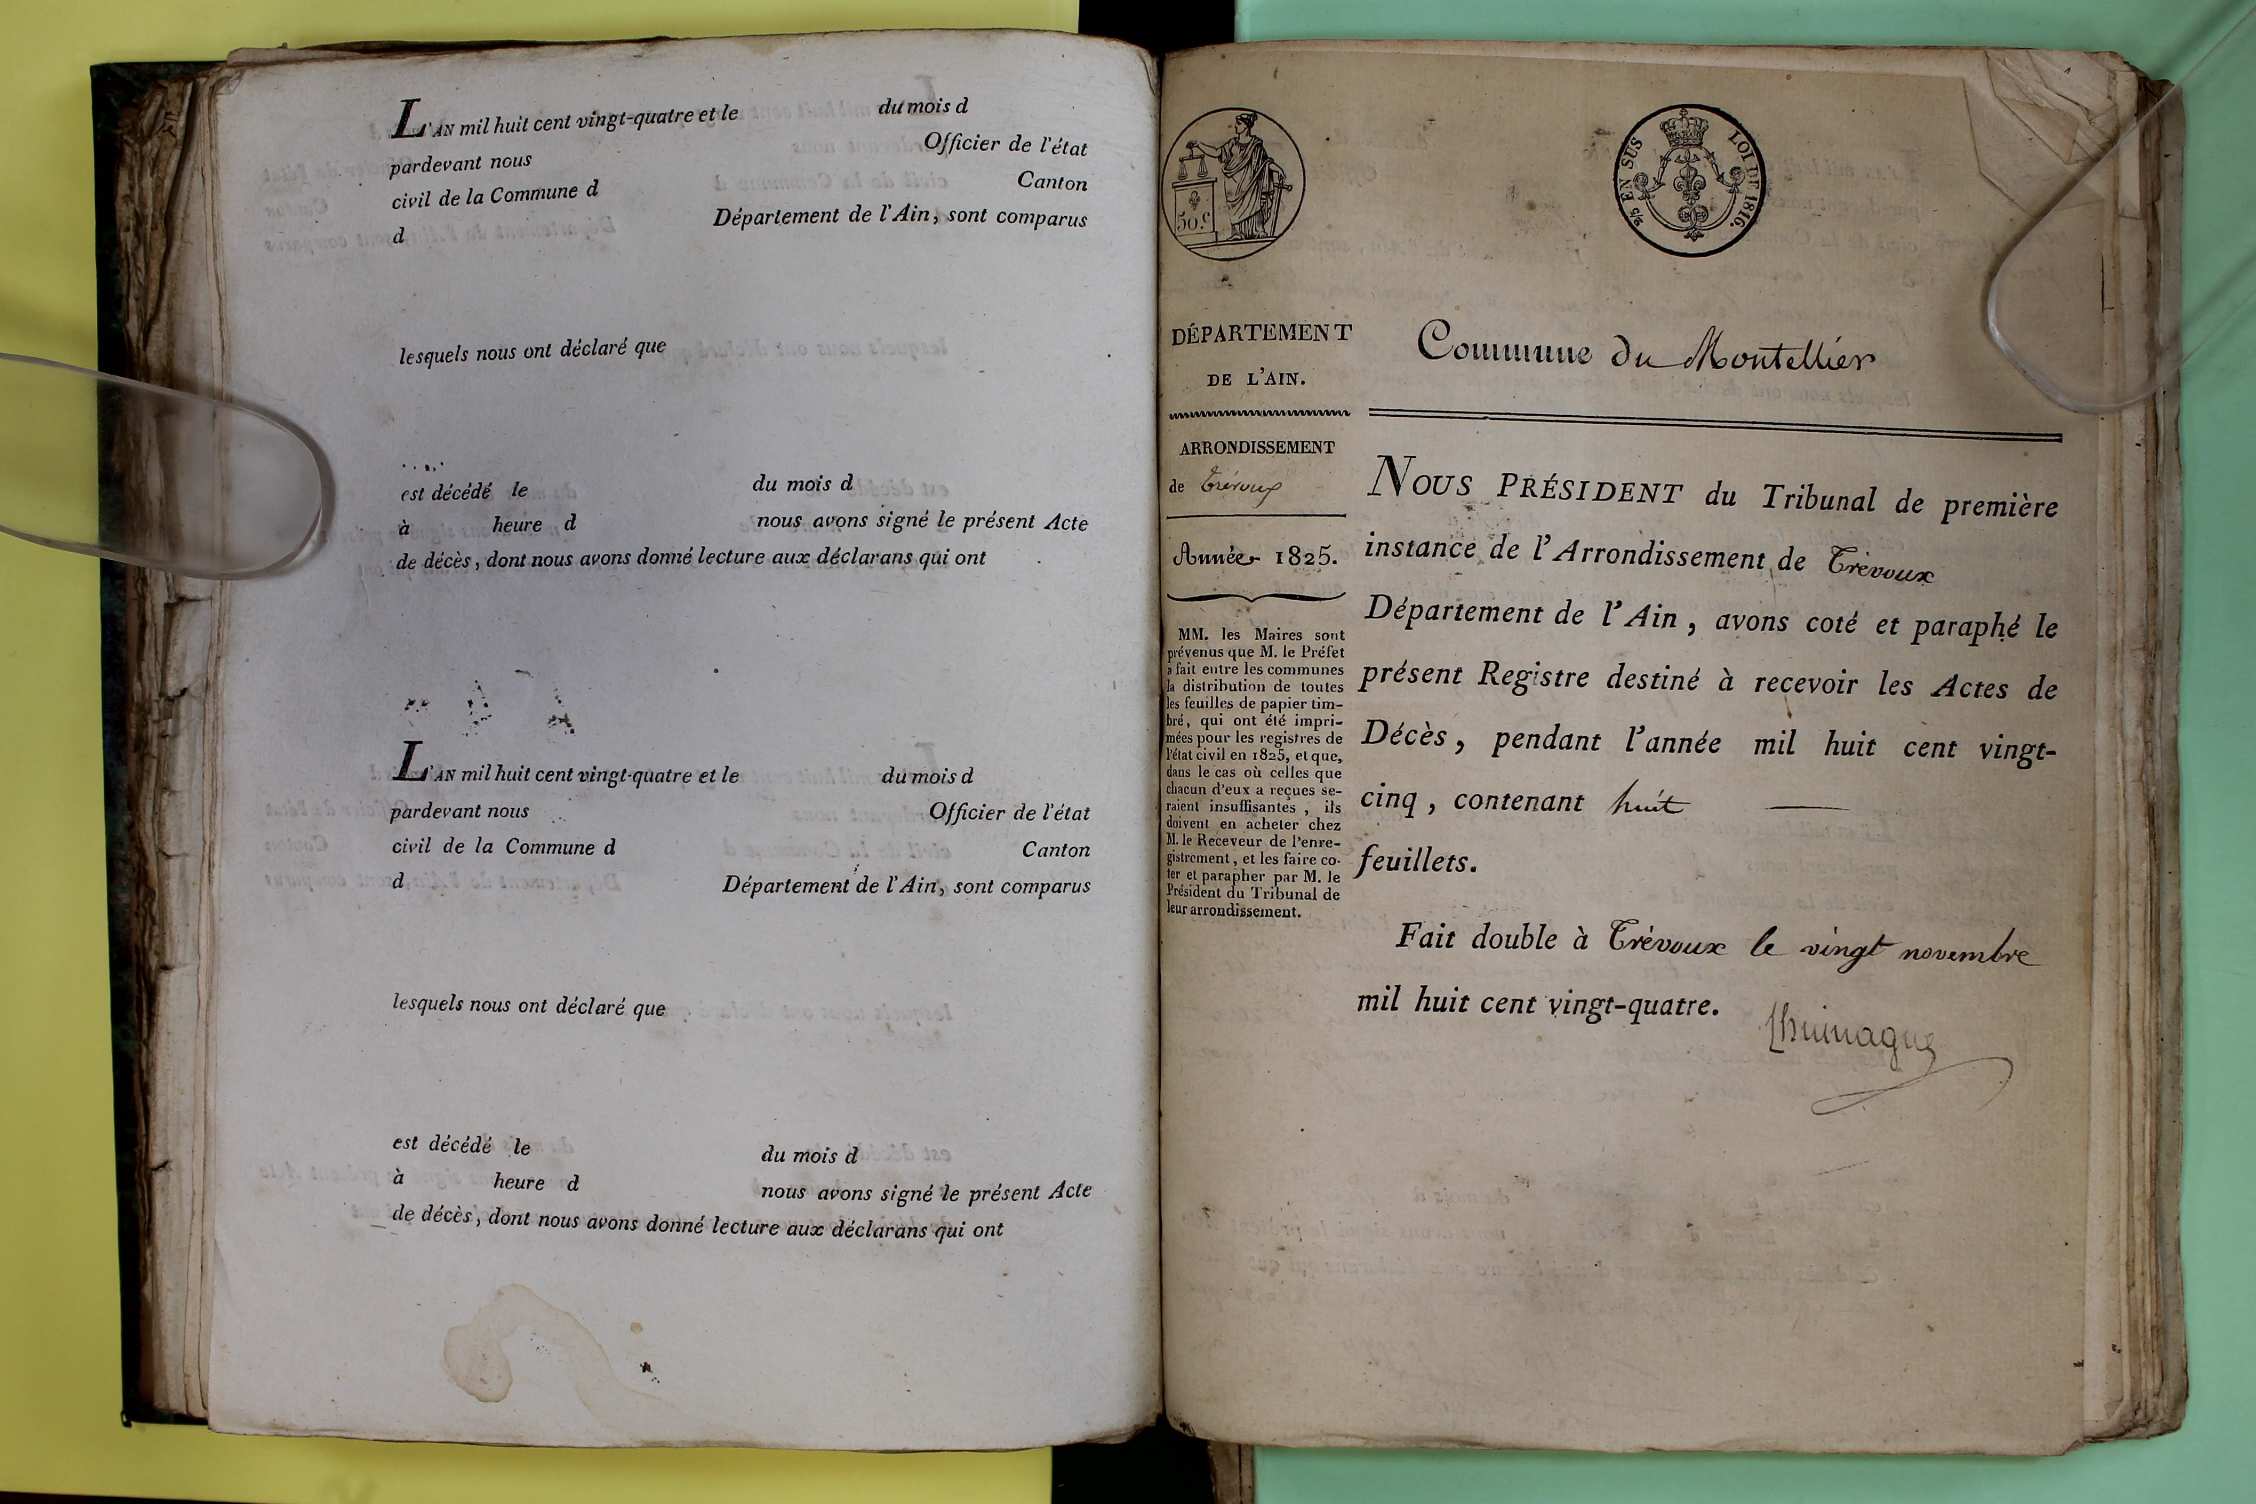 L'AN mil huit cent vingt-quatre et le du mois d
pardevant nous Officier de l'état
civil de la Commune d Canton
d Département de l'Ain, sont comparus
lesquels nous ont déclaré que
est décédé le du mois d
à heure d nous avons signé le présent Acte
de décès, dont nous avons donné lecture aux déclarans qui ont
L'AN mil huit cent vingt-quatre et le du mois d
pardevant nous Officier de l'état
civil de la Commune d Canton
d Département de l'Ain, sont comparus
lesquels nous ont déclaré que
est décédé le du mois d
à heure d nous avons signé le présent Acte
de décès, dont nous avons donné lecture aux déclarans qui ont
50 c.
EN SUS LOI DE 1816.
DÉPARTEMENT
DE L'AIN.
ARRONDISSEMENT
de Trévoux
Année 1825.
MM. les Maires sont
prévenus que M. le Préfet
a fait entre les communes
la distribution de toutes
les feuilles de papier tim-
bré, qui ont été impri-
mées pour les registres de
l'état civil en 1825, et que,
dans le cas où celles que
chacun d'eux a reçues se-
raient insuffisantes, ils
doivent en acheter chez
M. le Receveur de l'enre-
gistrement, et les faire co-
ter et parapher par M. le
Président du Tribunal de
leur arrondissement.
Commune du Montellier
NOUS PRÉSIDENT du Tribunal de première
instance de l'Arrondissement de Trévoux
Département de l'Ain, avons coté et paraphé le
présent Registre destiné à recevoir les Actes de
Décès, pendant l'année mil huit cent vingt-
cinq, contenant huit
feuillets.
Fait double à Trévoux le vingt novembre
mil huit cent vingt-quatre.